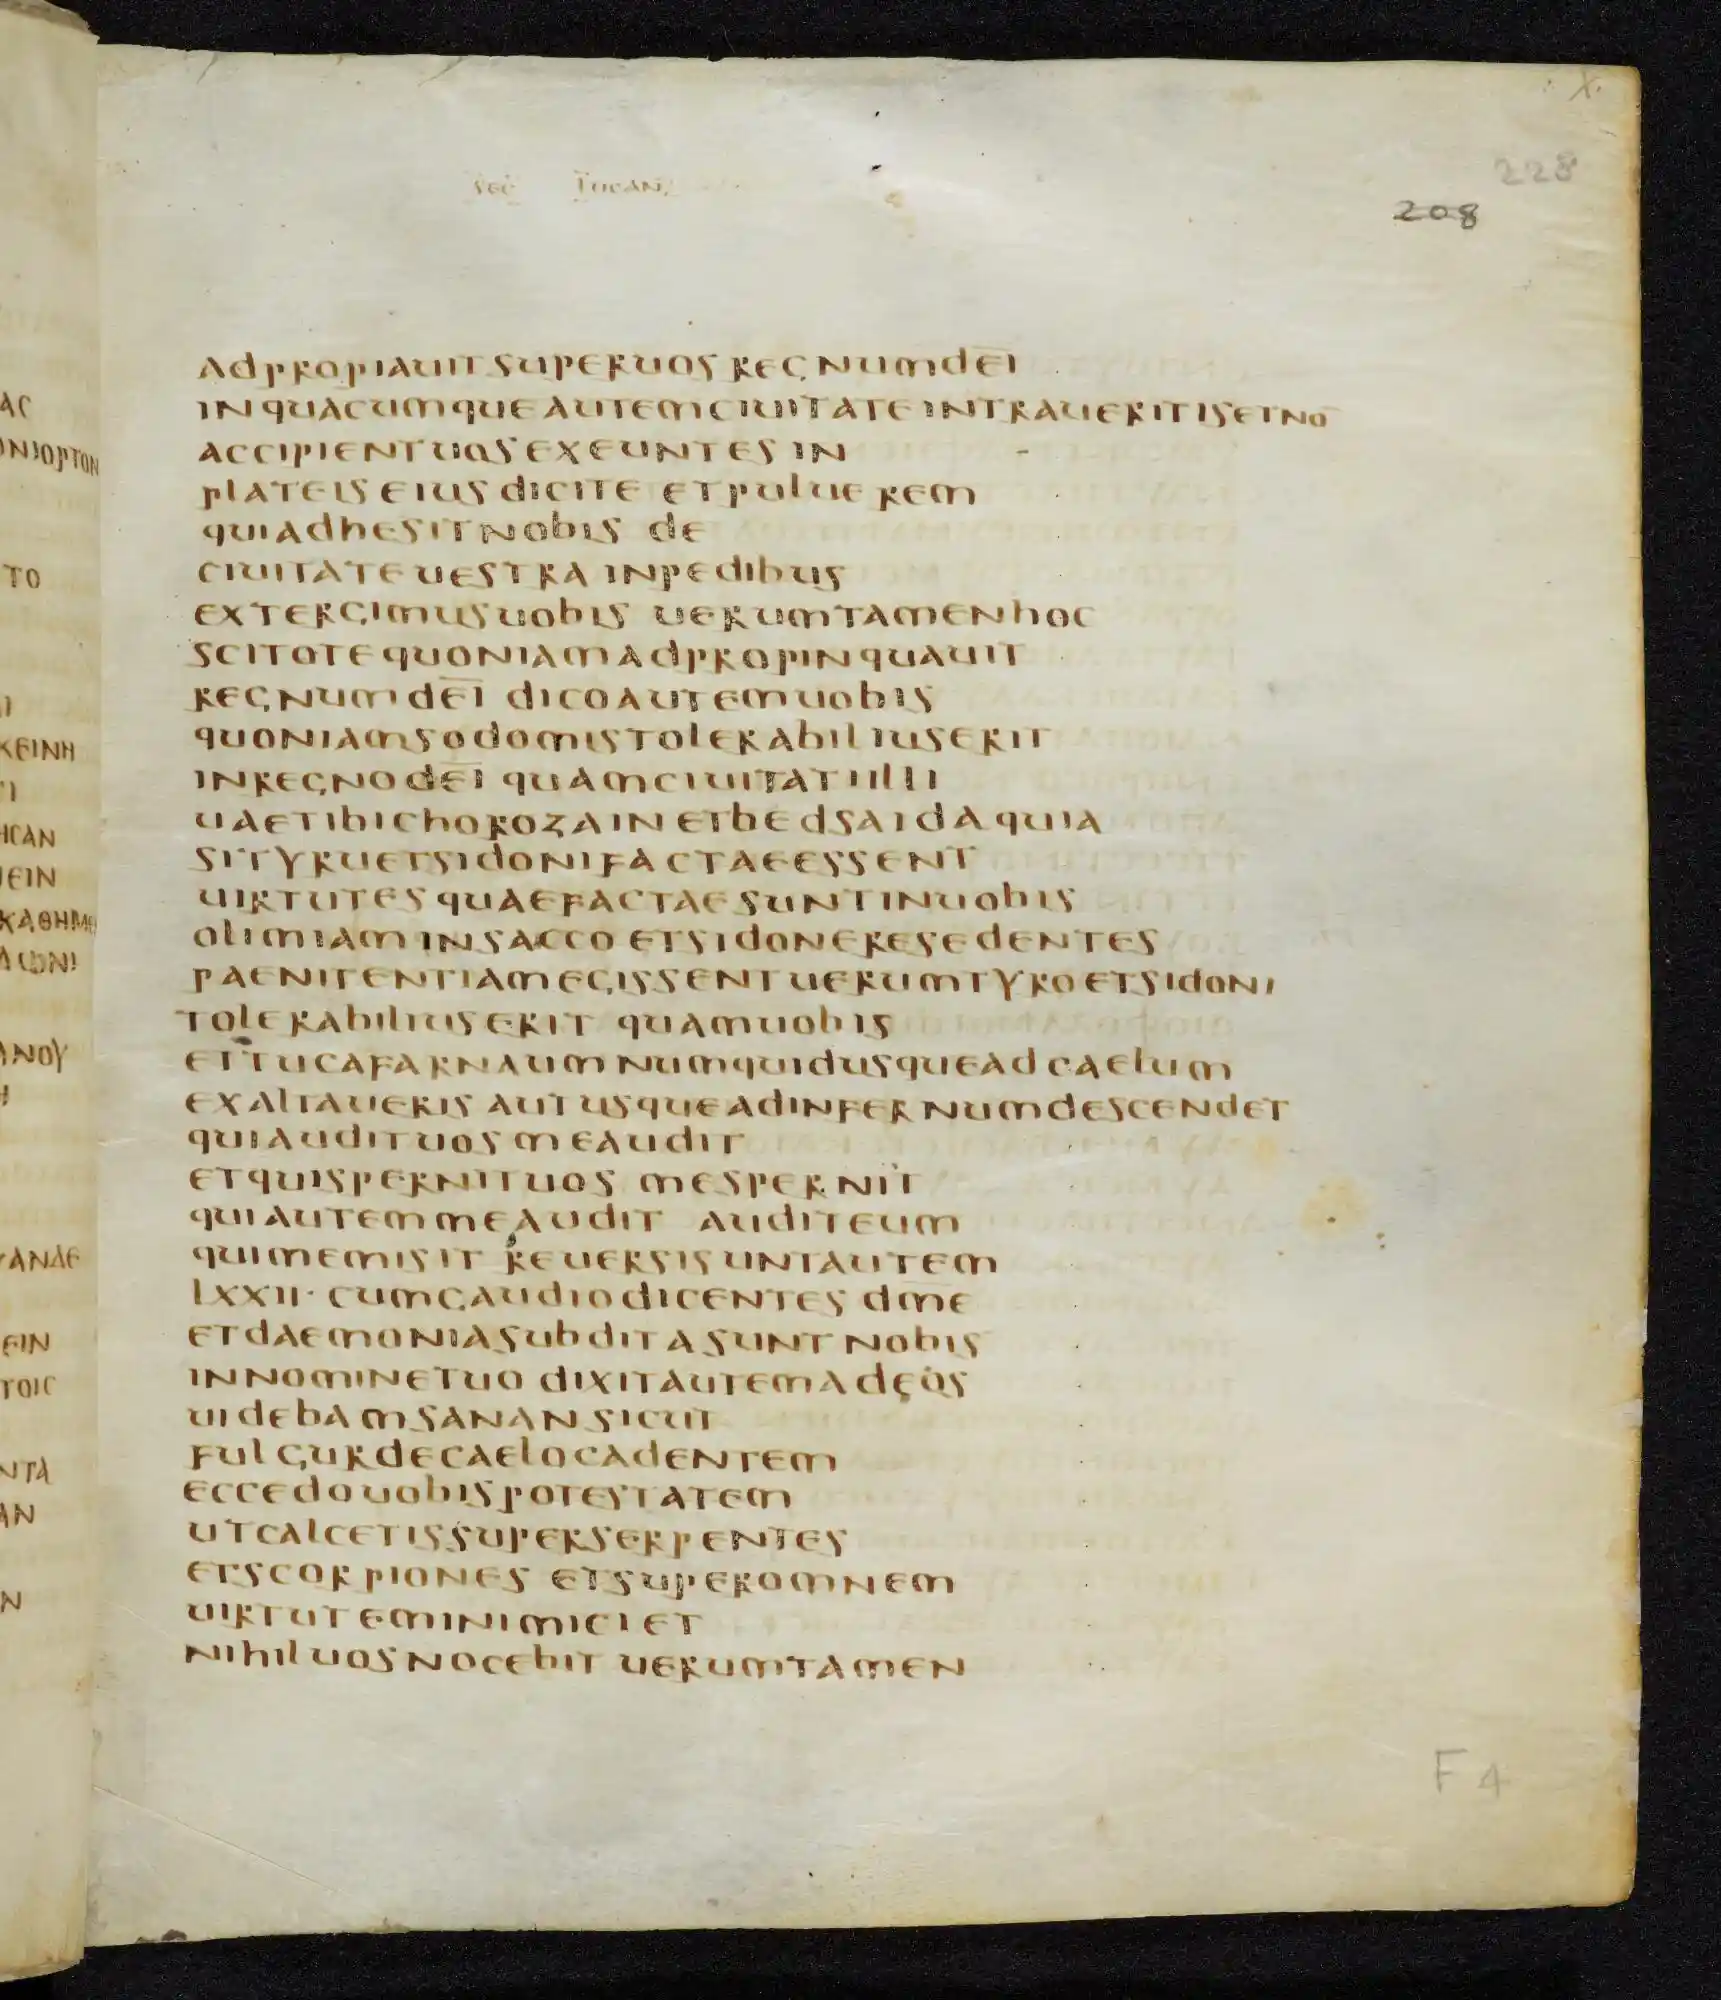 x
228
208
sec lucan
adpropiauit super uos regnum dei̅
in quacumque autem ciuitate intraueritis et no̅
accipient uos exeuntes in
plateis eius dicite et puluerem
qui adhesit nobis de
ciuitate uestra in pedibus
extergimus uobis uerumtamen hoc
scitote quoniam adpropinquauit
regnum dei̅ dico autem uobis
quoniam sodomis tolerabilius erit
in regno dei̅ quam ciuitati illi
uae tibi chorozain et bedsaida quia
si tyru et sidoni factae essent
uirtutes quae factae sunt in uobis
olim iam in sacco et sidone resedentes
paenitentiam egissent uerum tyro et sidoni
tolerabilius erit quam uobis
et tu cafarnaum numquid usque ad caelum
exaltaueris aut usque ad infernum descendet
qui audit uos me audit
et qui spernit uos me spernit
qui autem me audit audit eum
qui me misit reuersi sunt autem
lxxii· cum gaudio dicentes dm̅e
et daemonia subdita sunt nobis
in nomine tuo dixit autem ad eos
uidebam sanan sicut
fulgur de caelo cadentem
ecce do uobis potestatem
ut calcetis super serpentes
et scorpiones et super omnem
uirtutem inimici et
nihil uos nocebit uerumtamen
F 4